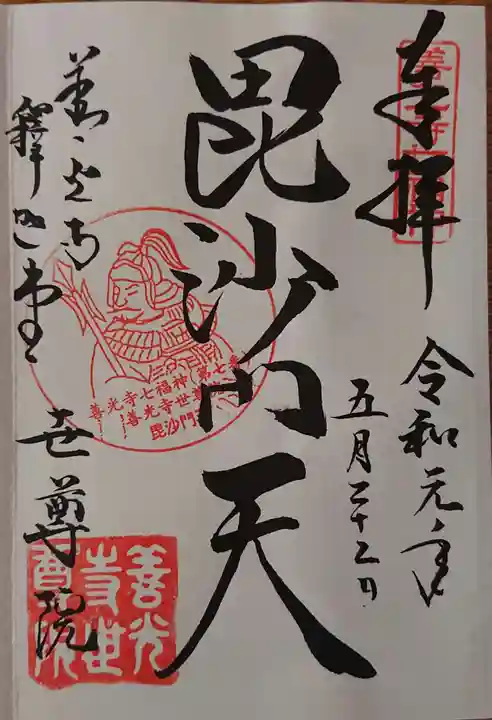 奉拝
令和元年
五月二十三日
毘沙門天
善光寺七福神(第七番)
善光寺世尊院
毘沙門天
善光寺
釋迦堂
世尊院
善光
寺世
尊院